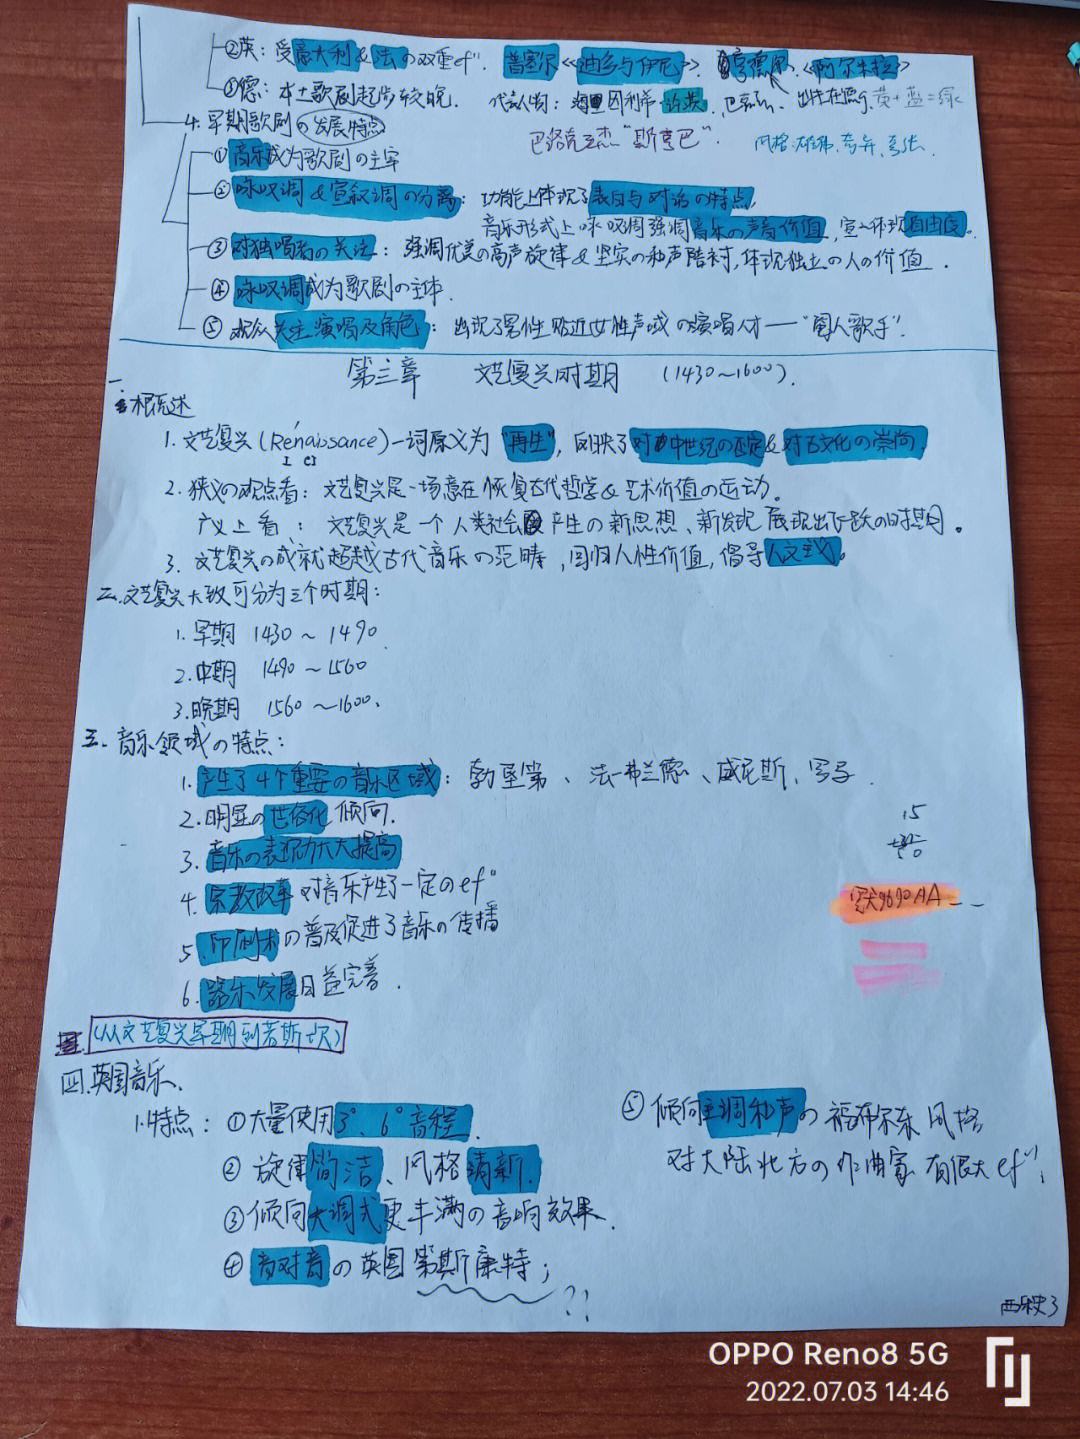 ②英：受意大利&法の双重ef". 普塞尔《迪多与伊尼》. 亨德尔《阿尔米拉》
③德：本土歌剧起步较晚. 代表人物：海因利希·许茨 出生在德 黄+蓝=绿
4. 早期歌剧の发展特点
巴洛克 "斯亨巴". 风格：雄伟、夸张.
①音乐成为歌剧の主宰
②咏叹调&宣叙调の分离：功能上体现了表白与对话の特点,
音乐形式上咏叹调强调音乐の声音价值, 宣∽体现自由度。
③对独唱者の关注：强调优美の高声旋律&坚实の和声陪衬,体现独立の人の价值.
④咏叹调成为歌剧の主体.
⑤观众关注演唱及角色：出现了男性贴近女性声域の演唱人才——"阉人歌手".
第三章 文艺复兴时期 (1430~1600).
一.概述
1. 文艺复兴(Rénaissance)一词原义为"再生", 反映了对中世纪の否定&对古文化の崇尚.
2. 狭义の观点看：文艺复兴是一场意在恢复古代哲学&艺术价值の运动。
广义上看：文艺复兴是一个人类社会产生の新思想、新发现展现出飞跃の时期。
3. 文艺复兴の成就超越古代音乐の范畴,回归人性价值,倡导人文主义。
二.文艺复兴大致可分为三个时期：
1. 早期 1430~1490
2. 中期 1490~1560
3. 晚期 1560~1600.
三. 音乐领域の特点：
1. 产生了4个重要の音乐区域：勃艮第、法-弗兰德、威尼斯、罗马.
2. 明显の世俗化倾向.
15
3. 音乐の表现力大大提高
4. 宗教改革对音乐产生了一定のef"
5. 印刷术の普及促进了音乐の传播
6. 器乐发展日益完善.
(从文艺复兴早期到若斯坎)
四.英国音乐.
1.特点：①大量使用3°、6°音程.
②旋律简洁、风格清新.
③倾向大调式更丰满の音响效果.
④音对音の英国第斯康特；
??
⑤倾向主调和声の福布尔东风格
对大陆北方の作曲家有很大ef".
西乐史3
OPPO Reno8 5G
2022.07.03 14:46